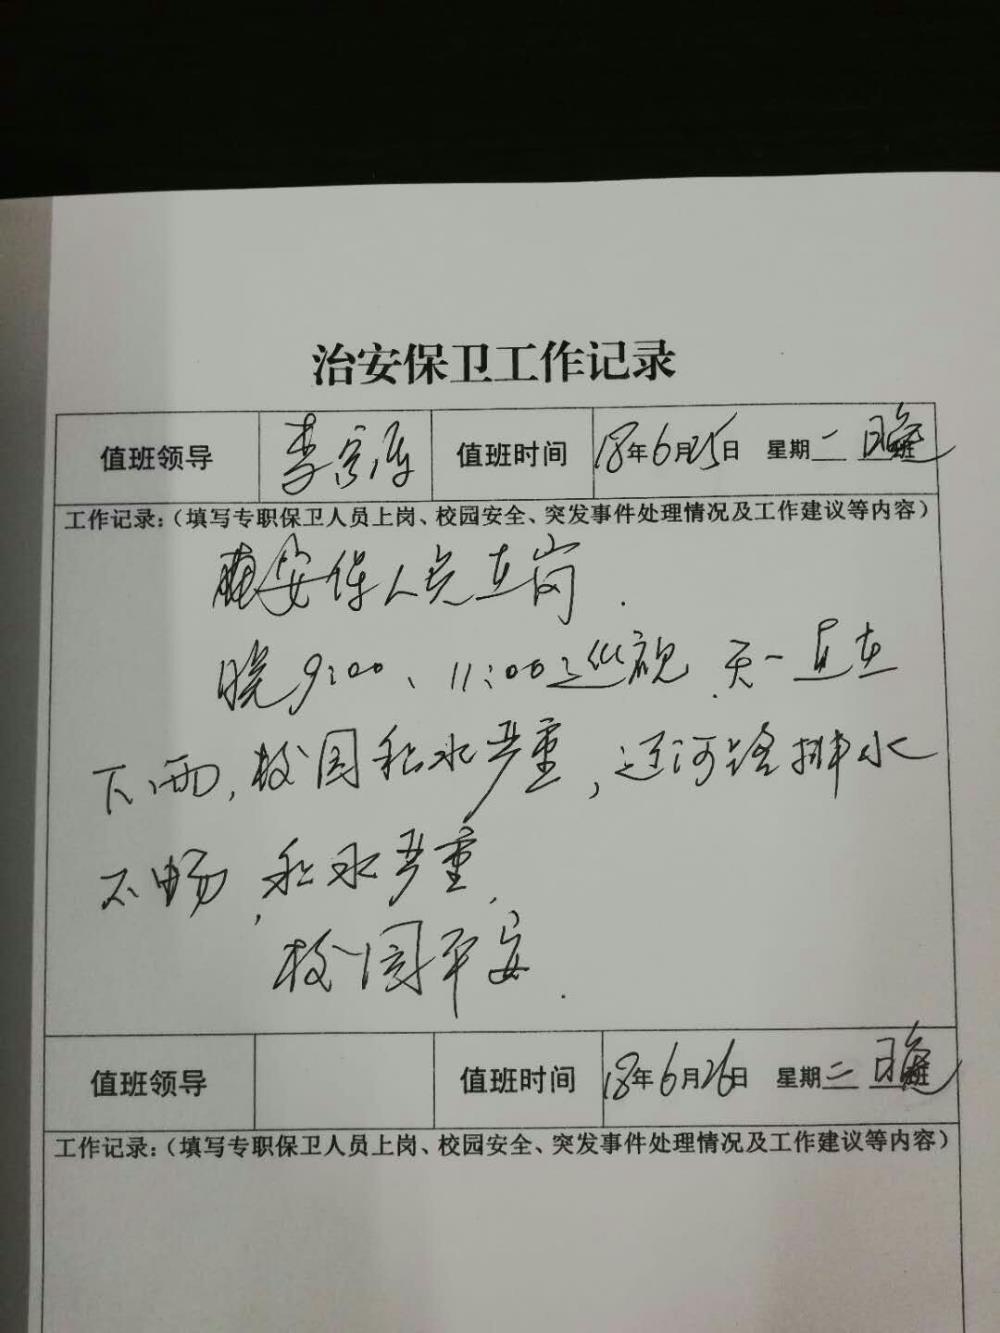 治安保卫工作记录
值班领导 李 值班时间 18年6月25日 星期二 晚
工作记录:（填写专职保卫人员上岗、校园安全、突发事件处理情况及工作建议等内容）
安保人员在岗.
晚9:00、11:00巡视.天一直在
下雨,校园积水严重,辽河路排水
不畅,积水严重.
校园平安.
值班领导 值班时间 18年6月26日 星期二 晚
工作记录:（填写专职保卫人员上岗、校园安全、突发事件处理情况及工作建议等内容）